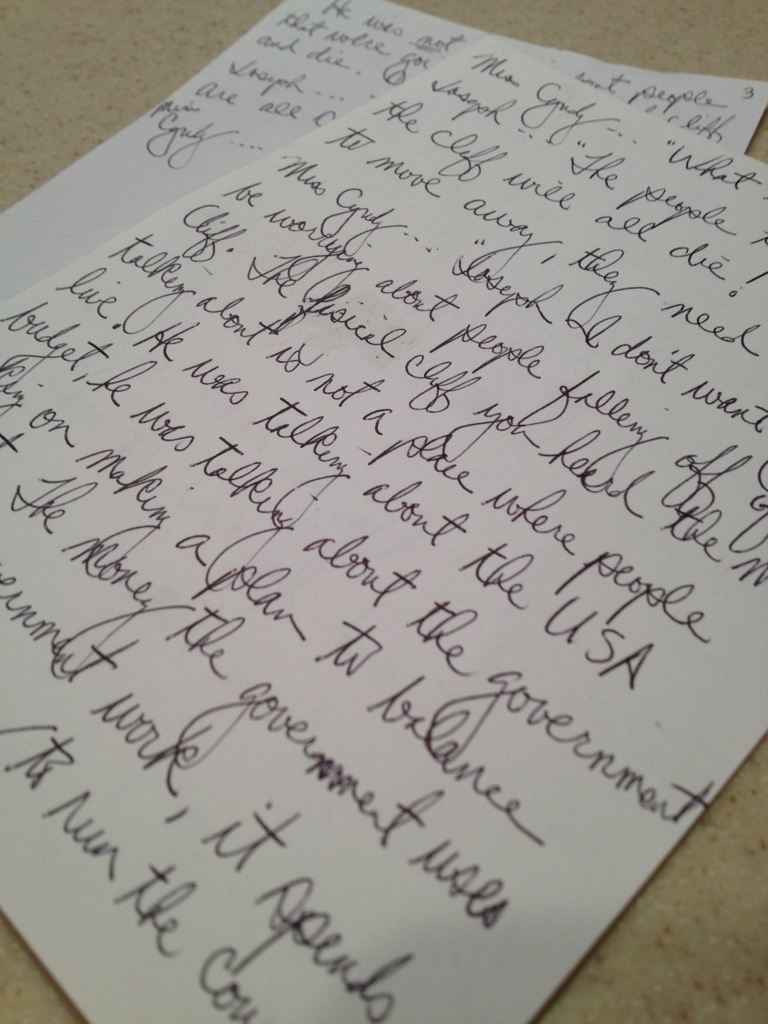 He was not
that were
and die.
Joseph ...
are all
Cyndy ....
about people
3
cliff
Miss Cyndy ... "What
Joseph ... "The people
the cliff will all die!
to move away, they need
Miss Cyndy ... "Joseph I don't want
be worrying about people falling off of
Cliff. The fisical cliff you heard the
talking about is not a place where people
live. He was talking about the USA
budget, he was talking about the government
king on making a plan to balance
The money the government uses
ernment work, it spends
to run the cou